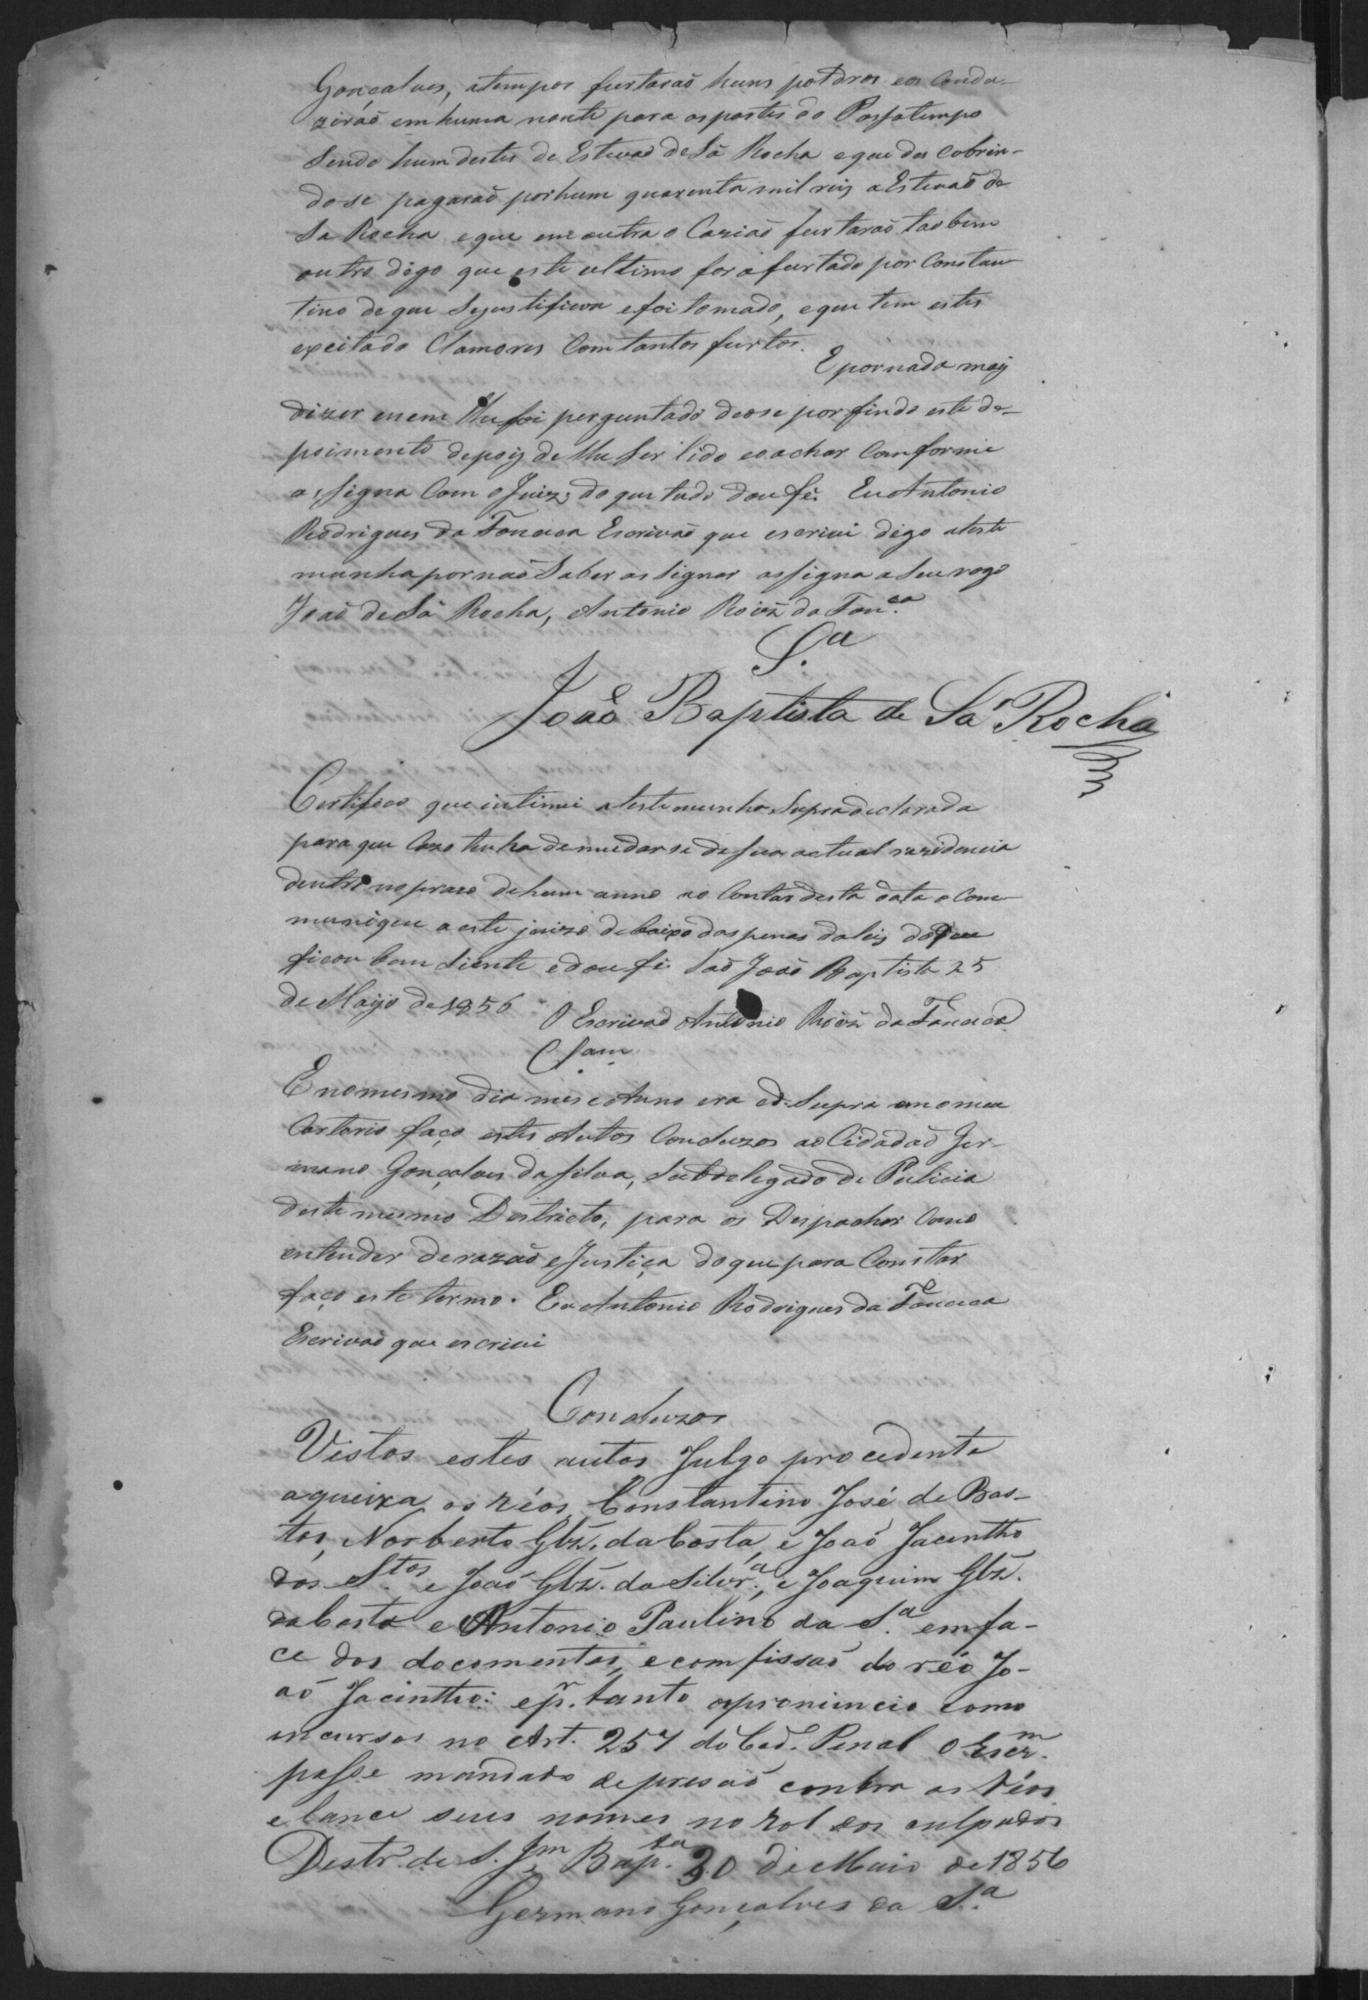 Gonçalves, atempos furtaraõ huns potdros eos Condu-
ziraõ emhuma noute para aspartes do Passatempo
Sendo hum destes de Estevaõ deSá Rocha eque des Cobrin-
dose pagaraõ porhum quarenta mil reis aEstevaõ de
Sa Rocha eque em outra o Caziaõ furtaraõ taobem
outro digo que este ultimo fora furtado por Constan-
tino deque Sejustificou efoi tomado, eque tem estes
exeitado Clamores Comtantos furtos.
E pornada maij
dizer enem lhefoi perguntado deose porfindo este de-
poimento depoij de lhe Ser lido eoachar Conforme
assigna Com oJuiz; doque tudo doufé. EuAntonio
Rodrigues da Fonceca Escrivaõ que escrevi digo ateste
munha pornaõ Saber assignar assigna aSeu rogo
Joaõ deSá Rocha, Antonio Roiz da Fon.ca
S.a
Joaõ Baptista de Sá Rocha
Certifico que intimei atestemunha Supradeclarada
para que Cazo tenha demudarse desua actual rezidencia
dentro noprazo dehum anno ao Contar desta data o Com-
munique aeste juizo debaixo daspenas daleij doque
ficou bem Siente edou fé Saõ Joaõ Baptista 25
de Maijo de 1856 O Escrivaõ Antonio Roiz daFonceca
Clam
E nomesmo dia mes eAnno era ed Supra emomeu
Cartorio faço estes Autos Concluzos aoCidadaõ Ger-
mano Gonçalves daSilva, Subdelegado de Policia
deste mesmo Destricto, para os Despachar Como
entender derazaõ eJustiça doque para Constar
faço este termo. EuAntonio Rodrigues da Fonceca
Escrivaõ que escrevi
Concluzos
Vistos estes autos Julgo procedente
aqueixa, os réos Constantino José de Bas-
tos, Norberto Glz. daCosta, e Joaõ Jacintho
dos S.tos e Joaõ Glz. da Silvr.a, e Joaquim Glz.
daCosta e Antonio Paulino da S.a emfa-
ce dos documentos, ecomfissaõ do réo Jo-
aõ Jacintho: epr. tanto ospronuncio como
incursos no Art. 257 doCod. Penal o Escr.m
passe mandado deprisaõ contra os réos
elance seus nomes no rol dos culpados
Destr. de S. Jm Bap.ta 30 de Maio de 1856
Germano Gonçalves da S.a